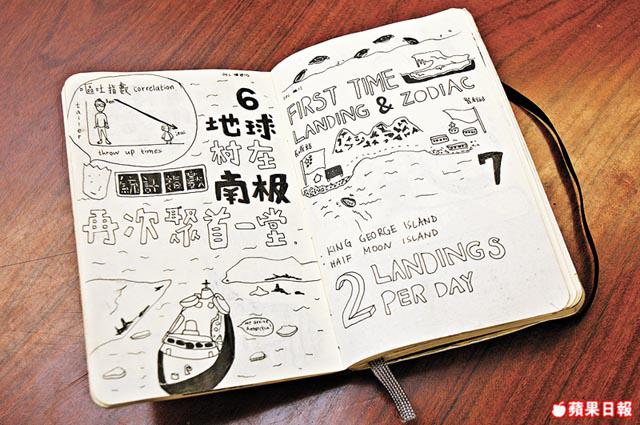 嘔吐指數 correlation
taller
throw up times
6
地球
村在
南极
統計指數
再次聚首一堂.
we are at
Antarctica!
FIRST TIME
LANDING & ZODIAC
7
KING GEORGE ISLAND
HALF MOON ISLAND
2 LANDINGS
PER DAY
蘋果日報